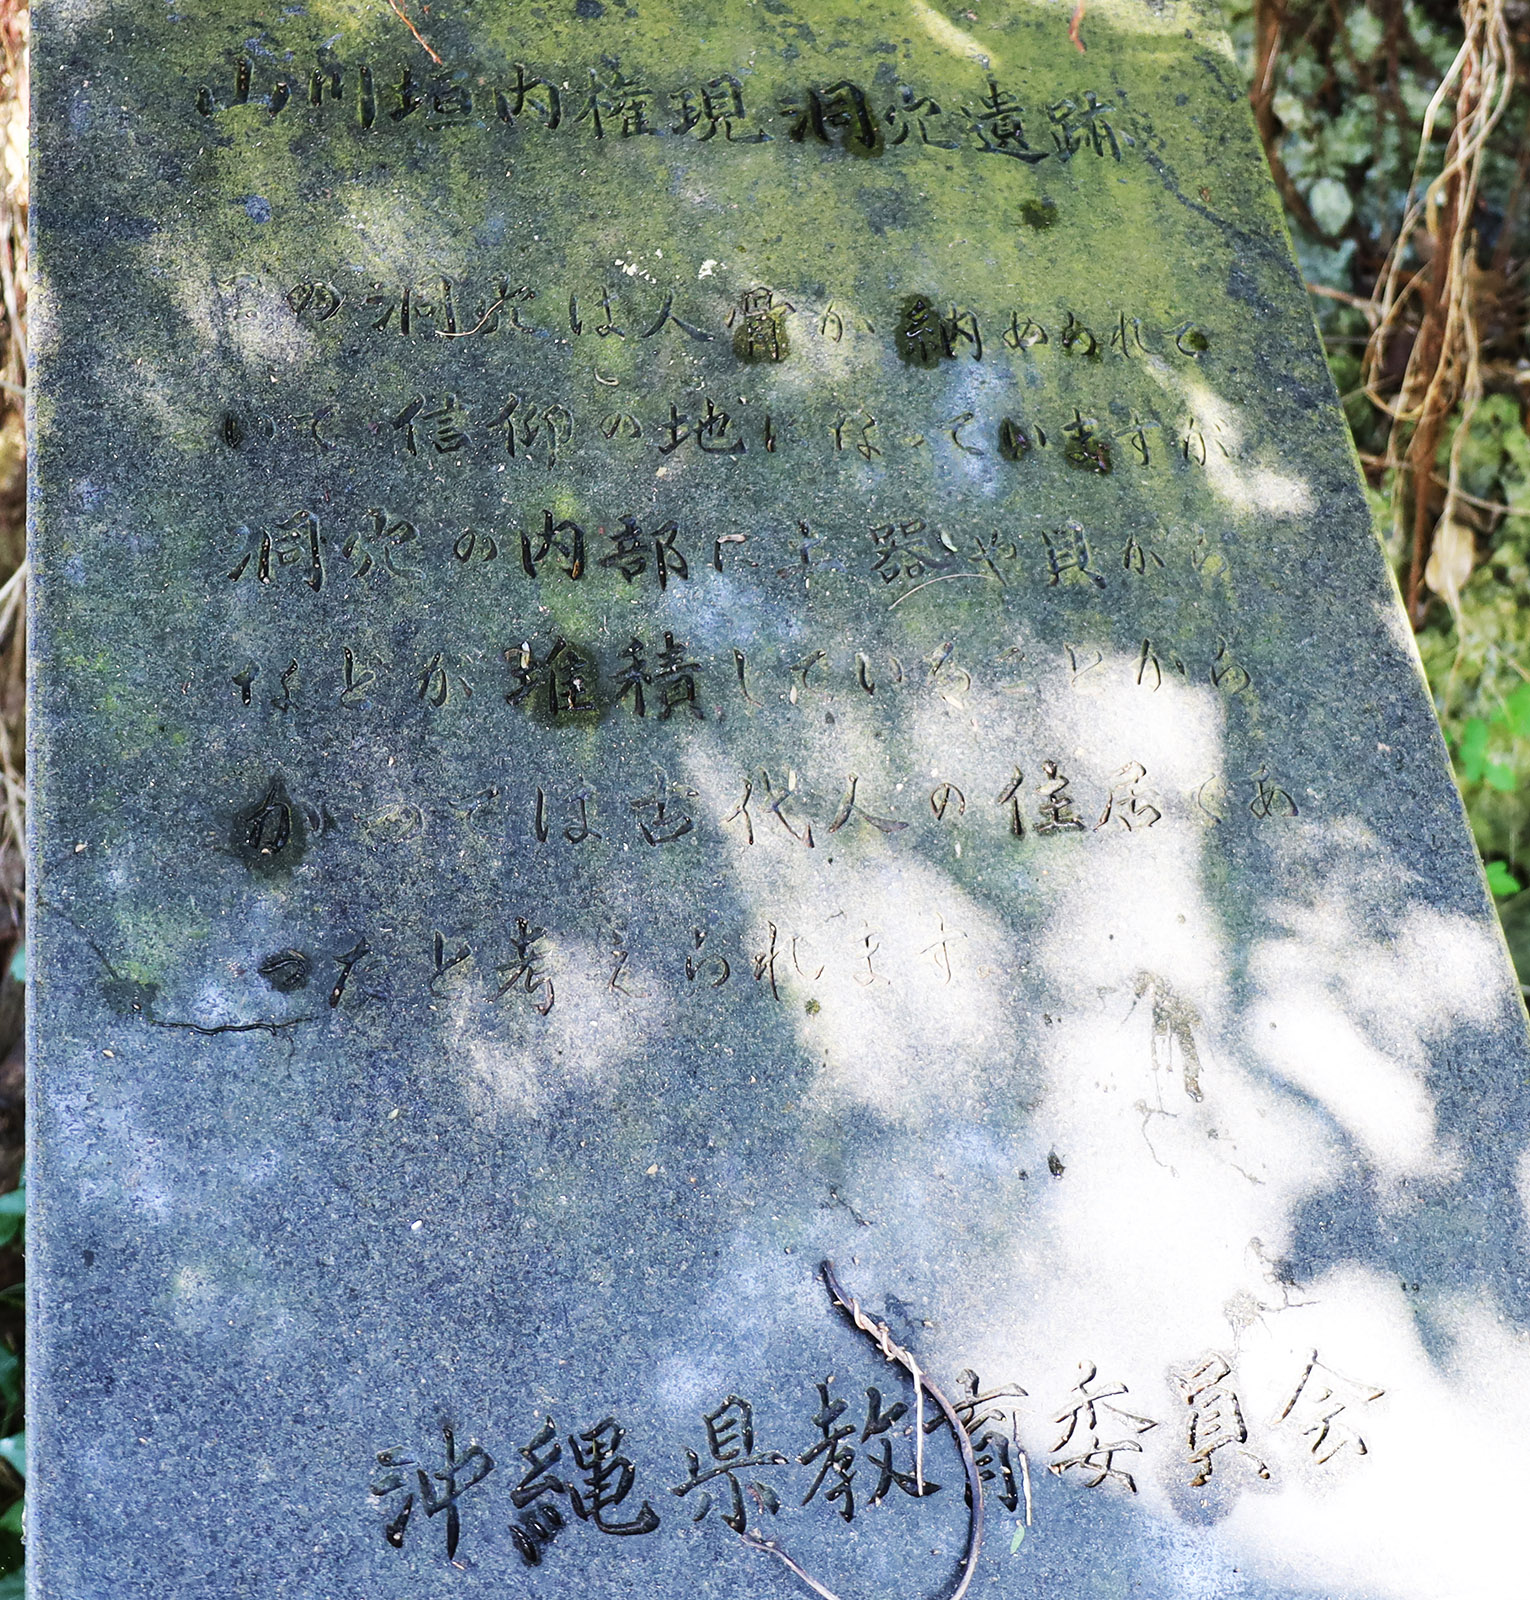 山川垣内権現洞穴遺跡
この洞穴は人骨が納められて
いて信仰の地になっていますが
洞穴の内部に土器や貝がら
などが堆積していることから
かつては古代人の住居であ
ったと考えられます
沖縄県教育委員会